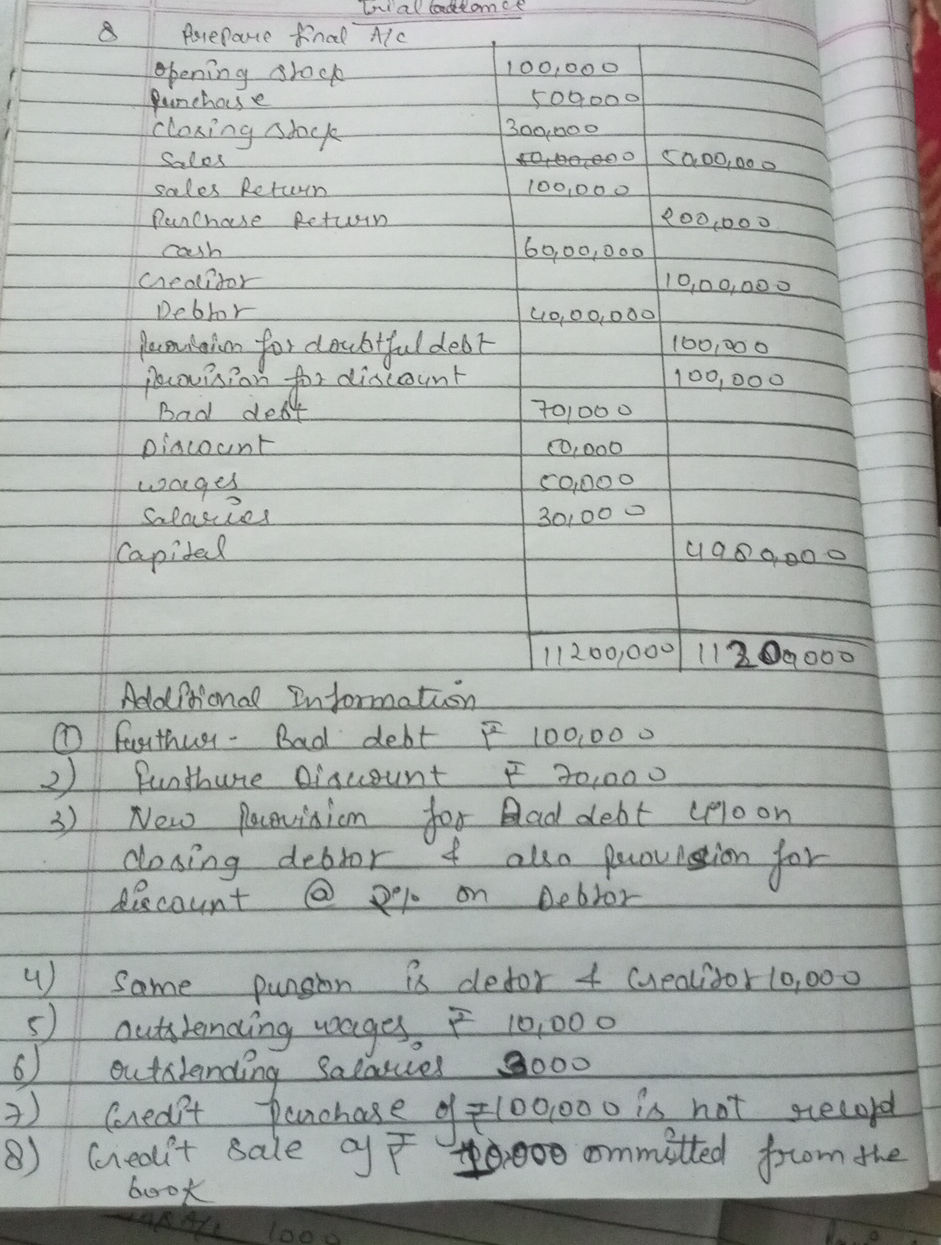 Trial balance
Q Prepare final A/C
Opening stock 100,000
Purchase 500,000
Closing stock 300,000
Sales 50,00,000 50,00,000
Sales Return 100,000
Purchase Return 200,000
cash 60,00,000
Creditor 10,00,000
Debtor 40,00,000
Provision for doubtful debt 100,000
Provision for discount 100,000
Bad debt 70,000
Discount 50,000
wages 50,000
Salaries 30,000
Capital
11200,000 11200,000
Additional Information
① Furthur - Bad debt ₹ 100,000
2) Furthure Discount ₹ 70,000
3) New Provision for Bad debt 4% on
closing debtor & also provision for
discount @ 2% on Debtor
4) Same pungon is detor & Creditor 10,000
5) outstanding wages ₹ 10,000
6) outstanding Salaries 3000
7) Credit Purchase of ₹ 100,000 is not record
8) Credit sale of ₹ ommitted from the
book
1000